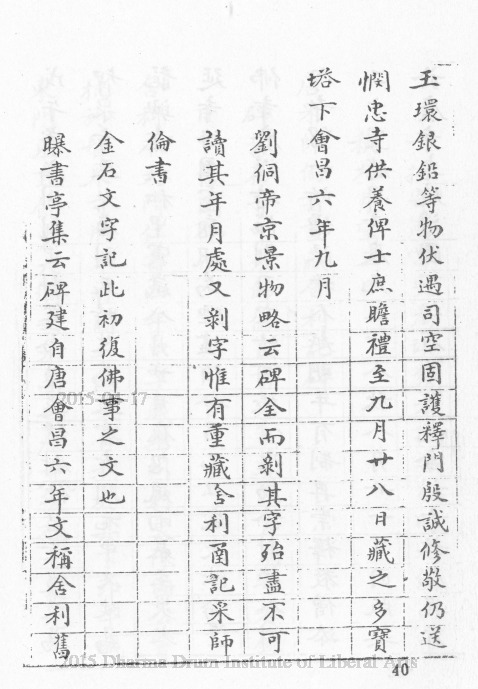 玉環銀鋜等物伏遇司空固護釋門殷誠修敬仍送
憫忠寺供養俾士庶瞻禮至九月廿八日藏之多寶
塔下會昌六年九月
劉侗帝京景物略云碑全而剝其字殆盡不可
讀其年月處又剝字惟有重藏舍利函記采師
倫書
金石文字記此初復佛事之文也
曝書亭集云碑建自唐會昌六年文稱舍利舊
2015-04-17
2015 Dharma Drum Institute of Liberal Arts
40